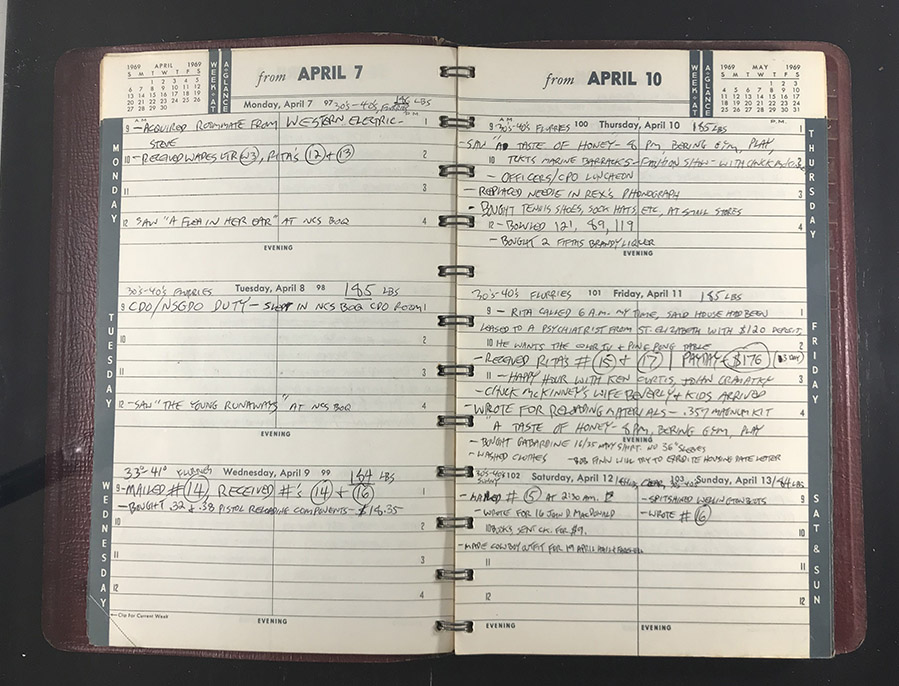 1969 APRIL 1969
S M T W T F S
1 2 3 4 5
6 7 8 9 10 11 12
13 14 15 16 17 18 19
20 21 22 23 24 25 26
27 28 29 30
WEEK-AT
A-GLANCE
from APRIL 7
Monday, April 7 97 30'S-40'S FLURRIES 186 LBS
MONDAY
A.M. P.M.
9 -ACQUIRED ROOMMATE FROM WESTERN ELECTRIC- 1
STEVE
10 -RECEIVED WADES LTR #3, RITA'S 12 + 13 2
11 3
12 SAW "A FLEA IN HER EAR" AT NCS BOQ 4
EVENING
30'S-40'S FLURRIES Tuesday, April 8 98 185 LBS
TUESDAY
9 CDO/NSGDO DUTY - SLEPT IN NCS BOQ CDO ROOM 1
10 2
11 3
12 -SAW "THE YOUNG RUNAWAYS" AT NCS BOQ 4
EVENING
33°-41° FLURRIES Wednesday, April 9 99 184 LBS
WEDNESDAY
9 -MAILED # 14, RECEIVED #'S 14 + 16 1
-BOUGHT .32 + .38 PISTOL RELOADING COMPONENTS - $18.35
10 2
11 3
12 4
←Clip For Current Week
EVENING
from APRIL 10
WEEK-AT
A-GLANCE
1969 MAY 1969
S M T W T F S
1 2 3
4 5 6 7 8 9 10
11 12 13 14 15 16 17
18 19 20 21 22 23 24
25 26 27 28 29 30 31
A.M. P.M.
9 30'S-40'S FLURRIES 100 Thursday, April 10 185 LBS 1
THURSDAY
-SAW "A TASTE OF HONEY - 8 PM, BERING GYM, PLAY
10 MARINE BARRACKS - FASHION SHOW - WITH CHUCK 2
- OFFICERS/CPO LUNCHEON
-REPLACED NEEDLE IN REX'S PHONOGRAPH 3
-BOUGHT TENNIS SHOES, SOCK HATS, ETC, AT STORES
12 - BOWLED 121, 89, 119 4
- BOUGHT 2 FIFTHS BRANDY LIQUER
EVENING
30'S-40'S FLURRIES 101 Friday, April 11 185 LBS
FRIDAY
9 - RITA CALLED 6 A.M. MY TIME, SAID HOUSE HAD BEEN 1
LEASED TO A PSYCHIATRIST FROM ST. ELIZABETH WITH $120 DEPOSIT,
10 HE WANTS THE COLOR TV + PING PONG TABLE 2
-RECEIVED RITA'S # 15 + 17 PAYDAY - $176
11 - HAPPY HOUR WITH KEN CURTIS, JOHN 3
-CHUCK McKINNEY'S WIFE BEVERLY + KIDS ARRIVED
-WROTE FOR RELOADING MATERIALS - .357 MAGNUM KIT 4
"A TASTE OF HONEY - 8 PM, BERING GYM, PLAY
- BOUGHT GABARDINE 16/35 NAVY SHIRT. NO 36" SLEEVES
EVENING
- WASHED CLOTHES - BOB FINN WILL TRY TO HOUSING RATE LETTER
30'S-40'S SUNNY 102 Saturday, April 12 184 LBS CLEAR, 30'-40'S 103 Sunday, April 13 184 LBS
SAT & SUN
-MAILED # 5 AT 2:30 AM. - SPITSHINED WELLINGTON BOOTS 9
- WROTE FOR 16 JOHN D MACDONALD - WROTE # 6
10 BOOKS SENT CK. FOR $9. 10
-MADE COWBOY OUTFIT FOR 19 APRIL
11 11
12 12
EVENING EVENING